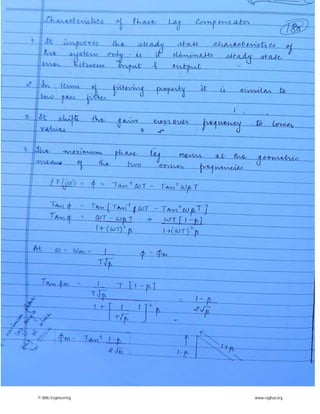 Characteristics of Phase Lag Compensator
188
1. It improves the steady state characteristics of
the system only as it eliminates steady state
error between input & output
2. In term of filtering property it is similar to
low pass filter
3. It shifts the gain crossover frequency to lower
values
4. The maximum phase lag occurs at the geometric
mean of the two corner frequencies
∠T(jω) = φ = Tan⁻¹ωT − Tan⁻¹ωβT
Tanφ = Tan[Tan⁻¹ωT − Tan⁻¹ωβT]
Tanφ = ωT − ωβT / 1+(ωT)²β = ωT[1−β] / 1+(ωT)²β
At ω = ωm = 1/T√β φ = φm
Tanφm = 1/T√β T[1−β] / 1+[1/T√β T]²β = 1−β / 2√β
φm = Tan⁻¹ 1−β / 2√β
1−β
1+β
www.raghul.org